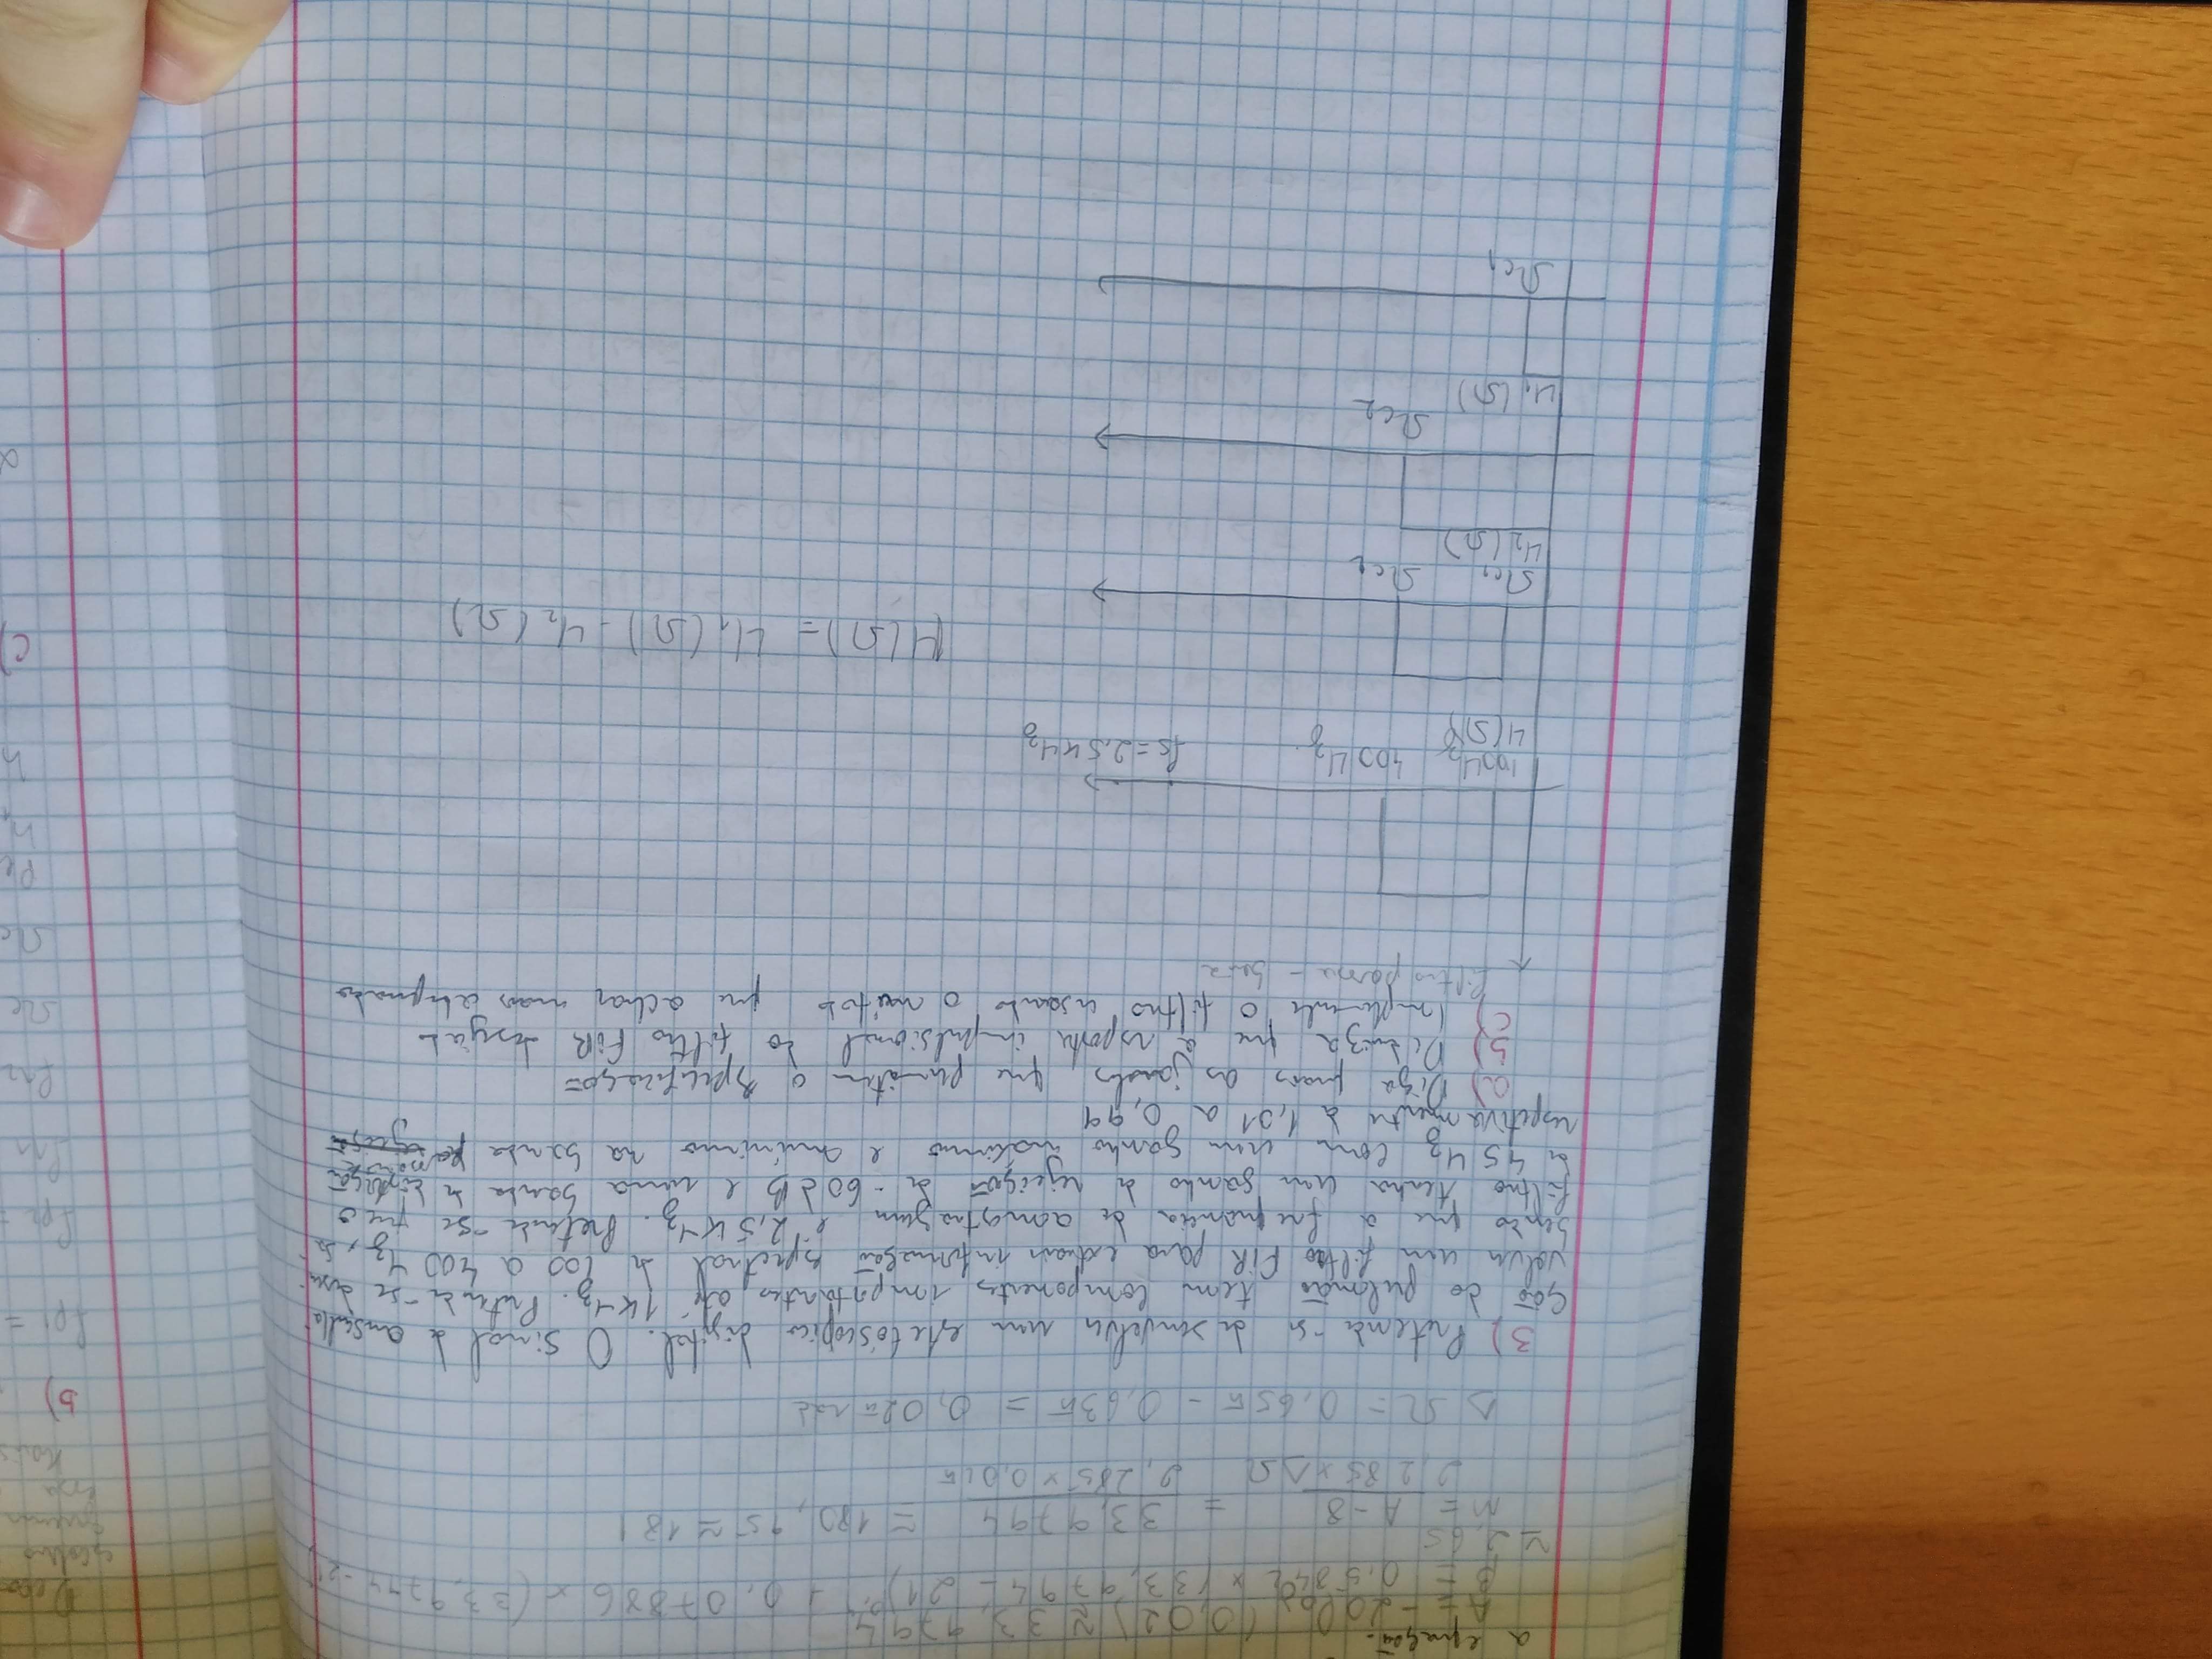 a equação.
A = -20 log (0,02) ≈ 33,9794
β = 0,5842 × (33,9794 - 21)^0,4 + 0,07886 × (33,9794 - 21)
≈ 2,65
M = A-8 / 2,285×ΔΩ = 33,9794 / 2,285×0,02π = 180,95 ≈ 181
ΔΩ = 0,65π - 0,63π = 0,02π rad
3) Pretende-se desenvolver um estetoscópico digital. O sinal de ausculta-
ção do pulmão tem componentes importantes até 1KHz. Pretende-se desen-
volver um filtro FIR para extrair informação espectral de 100 a 400 Hz, sa-
bendo que a frequência de amostragem é 2,5 KHz. Pretende-se que o
filtro tenha um ganho de rejeição de -60dB e uma banda de transição
de 45 Hz com um ganho máximo e mínimo na banda
respetivamente de 1,01 a 0,99
a) Diga quais as janelas que permitem a especificação
b) Deduza que a resposta impulsional do filtro FIR desejado
c) Implemente o filtro usando o método que achar mais adequado
Filtro passa-banda
100Hz 400Hz fs=2,5KHz
H(Ω)
H(Ω) = H1(Ω) - H2(Ω)
Ωc1 Ωc2
H2(Ω)
Ωc2
H1(Ω)
Ωc1
b)
c)